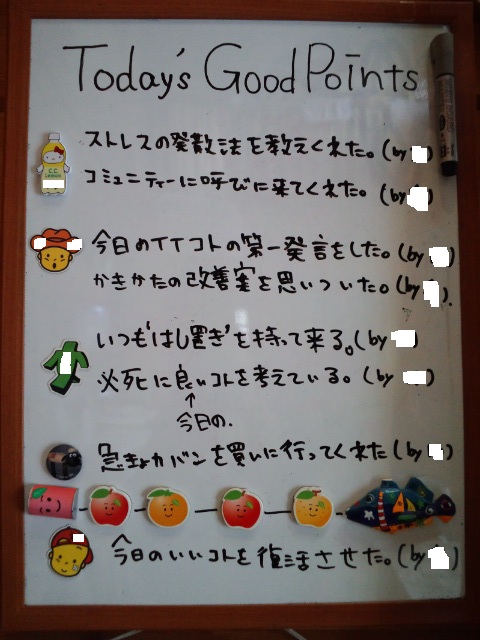 Today's Good Points
ストレスの発散法を教えくれた。(by
コミュニティーに呼びに来てくれた。(by
今日のイイコトの第一発言をした。(by )
かきかたの改善案を思いついた。(by ).
いつも'はし置き'を持って来る。(by
必死に良いコトを考えている。(by )
↑
今日の.
急きょカバンを買いに行ってくれた(by )
今日のいいコトを復活させた。(by )
C.C.
Lemon